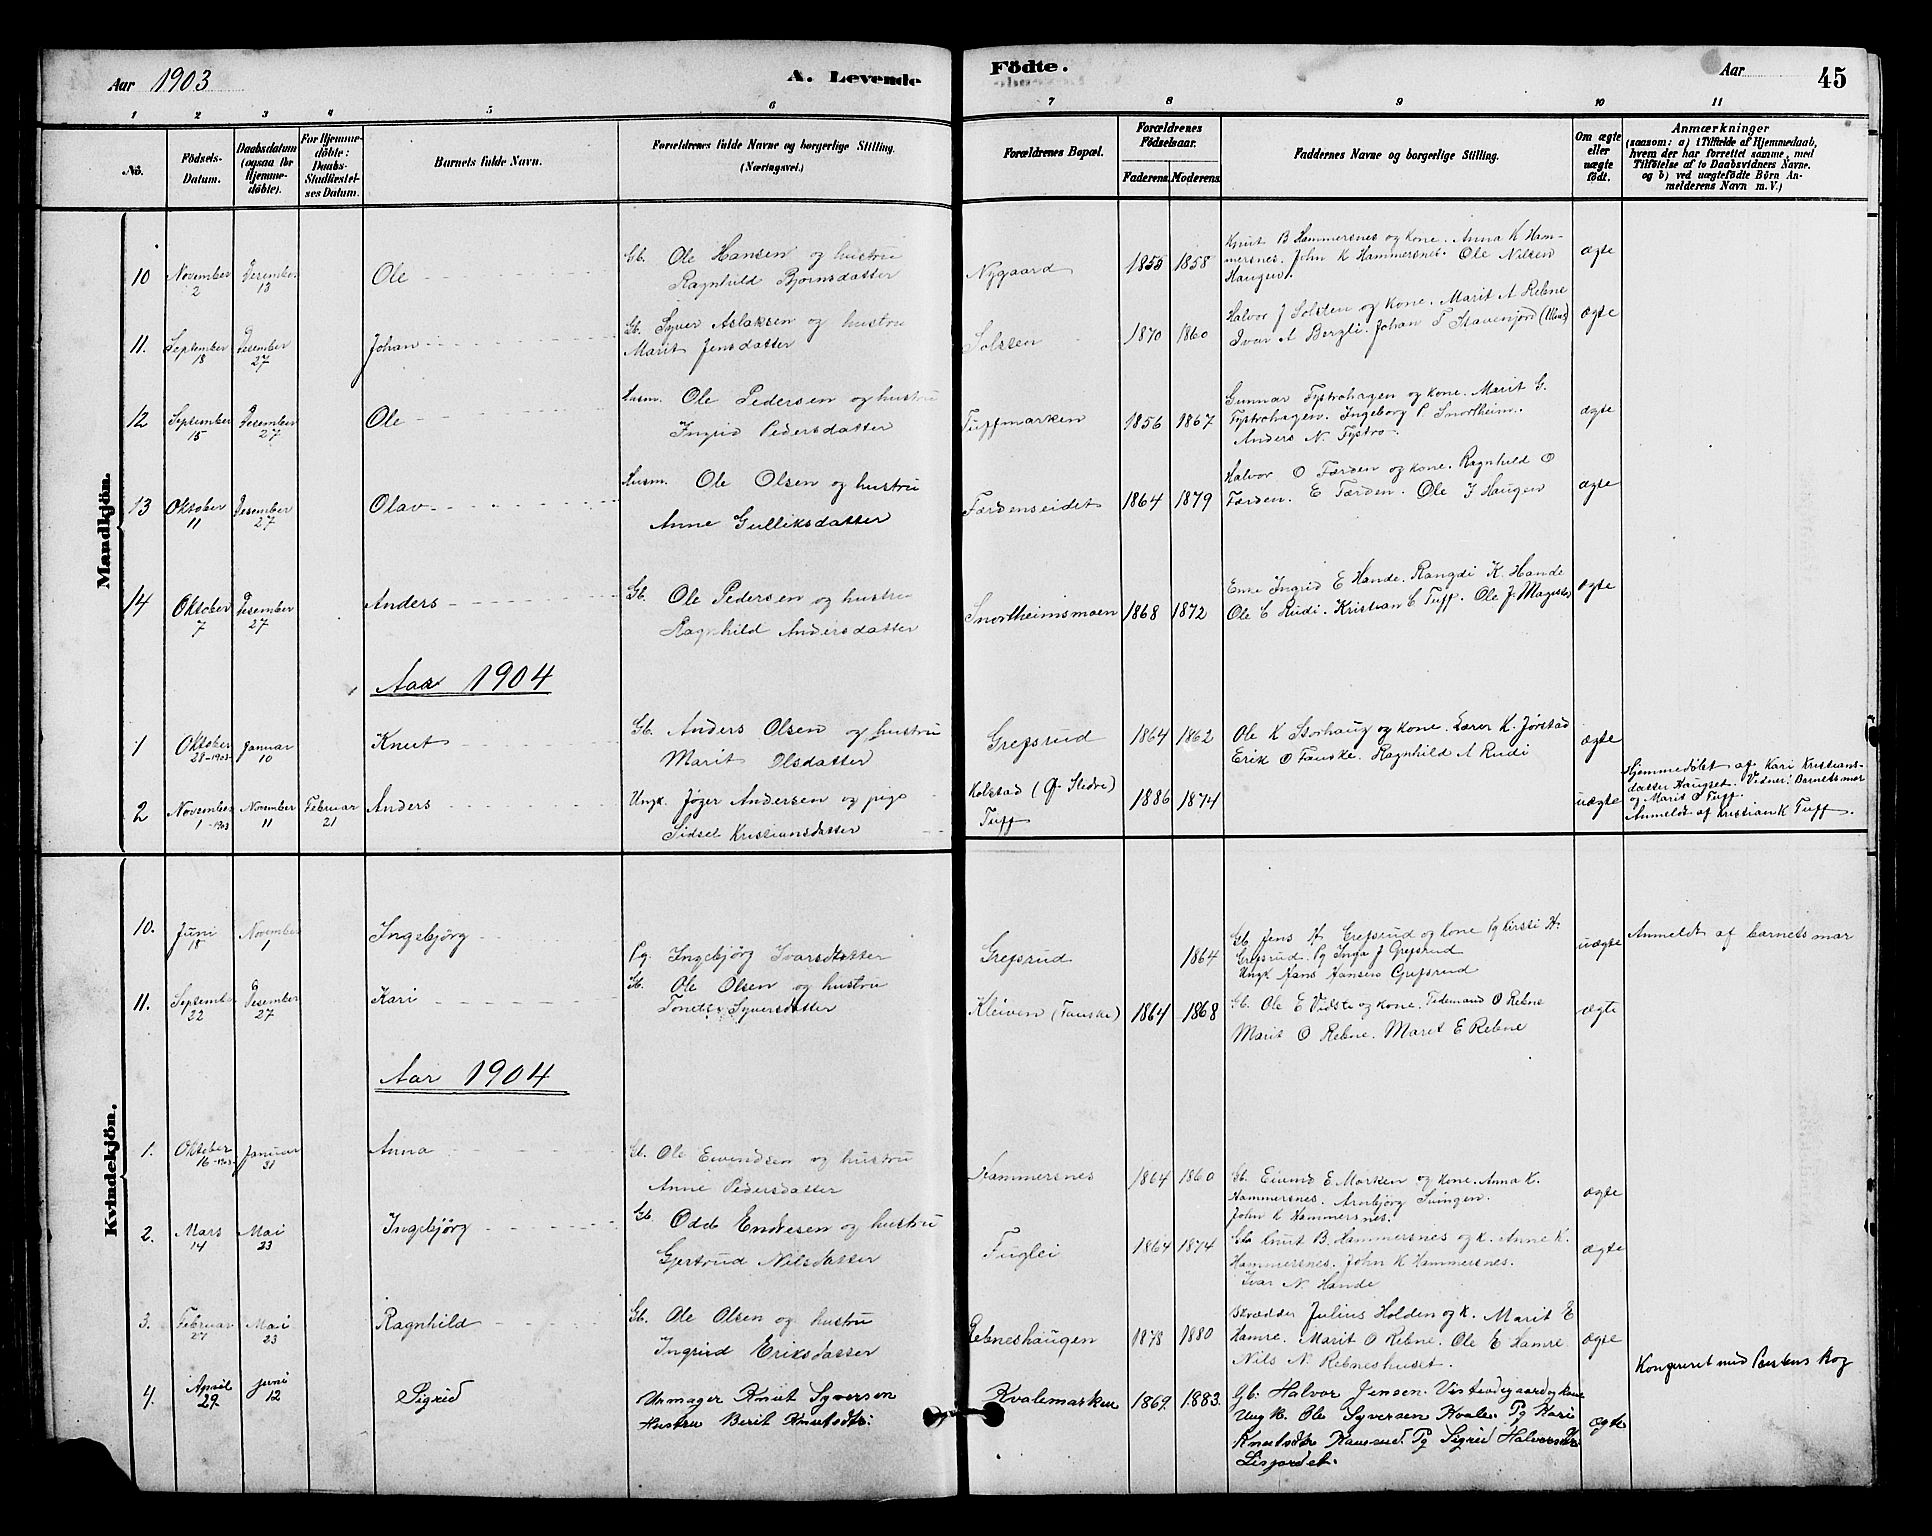 Aar 1903
A. Levende
Födte.
Aar
45
1 2 3 4 5 6 7 8 9 10 11
No.
Födsels-
Datum.
Daabsdatum
(ogsaa for
Hjemme-
döbte).
For Hjemme-
döbte:
Daabs-
Stadfæstel-
ses Datum.
Barnets fulde Navn.
Forældrenes fulde Navne og borgerlige Stilling.
(Næringsvei.)
Forældrenes Bopæl.
Forældrenes
Födselsaar.
Faderens. Moderens.
Faddernes Navne og borgerlige Stilling.
Om ægte
eller
uægte
födt.
Anmærkninger
(saasom: a) i Tilfælde af Hjemmedaab,
hvem der har forrettet samme, med
Tilföielse af to Daabsvidners Navne.
og b) ved uægtefödte Börn An-
melderens Navn m. V.)
Mandkjön.
10 November 2 Desember 13 Ole
Gb. Ole Hansen og hustru
Ragnhild Bjørnsdatter
Nygaard 1855 1858
Knut B Hammersnes og kone. Anna K Ham-
mersnes. John K Hammersnes. Ole Nilsen
Haugen.
ægte
11. September 18 Desember 27 Johan
Gb. Syver Aslaksen og hustru
Marit Jensdatter
Solsten 1870 1860
Halvor J Solsten og kone. Marit A Rebne
Ivar A Bergli. Johan T Stavenjord
ægte
12 September 15 Desember 27 Ole
Husm. Ole Pedersen og hustru
Ingrid Pedersdatter
Tuffmarken 1856 1867
Gunnar Tystrohagen og kone. Marit G.
Tystrohagen. Ingeborg P Snortheim.
Anders N. Tystro.
ægte
13 Oktober 11 Desember 27 Olav
Husm. Ole Olsen og hustru
Anne Gulliksdatter
Færdenseidet 1864 1879
Halvor O Færden og kone. Ragnhild O
Færden. E Færden. Ole J Haugen
ægte
14 Oktober 7 Desember 27 Anders
Gb. Ole Pedersen og hustru
Ragnhild Andersdatter
Snortheimsmoen 1868 1872
Enke Ingrid E Hande. Rangdi K. Hande
Ole E Rudi. Kristian C Tuff. Ole J. Magistad
ægte
Aar 1904
1 Oktober 28-1903 Januar 10 Knut
Gb. Anders Olsen og hustru
Marit Olsdatter
Grefsrud 1864 1862
Ole K Storhaug og kone. Lærer K. Jørstad
Erik O Fauske. Ragnhild A Rudi
ægte
2 November 1-1903 November 11 Februar 21 Anders
Ungk. Jøger Andersen og pige
Sidsel Kristiansdatter
Kolstad (Ø. Slidre)
Tuff
1886 1874
uægte
Hjemmedøbt af Kari Kristians-
datter Haugset. Vidner: Barnets mor
og Marit O Tuff.
Anmeldt af Kristian K Tuff.
Kvindekjön.
10. Juni 18 November 1 Ingebjörg
Pg. Ingebjörg Ivarsdatter
Grefsrud 1864
Gb Jens H. Grefsrud og kone Pg Kirsti H.
Grefsrud. Pg Inga J Grefsrud
Ungk Hans Hansen Grefsrud
uægte
Anmeldt af barnets mor
11. September 22 Desember 27 Kari
Gb. Ole Olsen og hustru
Tonette Syversdatter
Kleiven (Fauske) 1864 1868
Gb. Ole E Vidste og kone. Tedemand O Rebne
Marit O Rebne. Marit E Rebne
ægte
Aar 1904
1. Oktober 16-1903 Januar 31 Anna
Gb. Ole Eivendsen og hustru
Anne Pedersdatter
Hammersnes 1864 1860
Gb. Eivind E. Marken og kone. Anna K.
Hammersnes. Arnbjørg Svingen.
John K Hammersnes.
ægte
2. Mars 14 Mai 23 Ingebjörg
Gb. Odd Endresen og hustru
Gjertrud Nilsdatter
Fuglei 1864 1874
Gb Knut B. Hammersnes og k. Anne K.
Hammersnes. John K Hammersnes.
Ivar N. Hande
ægte
3. Februar 27 Mai 23 Ragnhild
Gb. Ole Olsen og hustru
Ingrid Eriksdatter
Rebneshaugen 1878 1880
Skrædder Julius Holden og k. Marit E
Hamre. Marit O Rebne. Ole E Hamre
Nils N. Rebneshuset.
ægte
4. April 29 Juni 12 Sigrid
Urmager Knut Syversen
Hustru Berit Knutsdtr:
Kvalemarken 1869. 1883.
Gb. Halvor Jensen Vistendegaard og kone
Ungk. Ole Syversen Kvale. Pg Kari
Knutsdtr Kausrud. Pg Sigrid Halvorsdtr
Lisjordet.
ægte
Konfereret med Prestens Bog